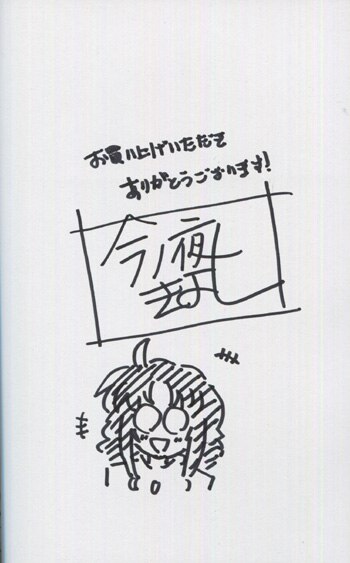 お買い上げいただき
ありがとうございます!
今ノ夜
きよし